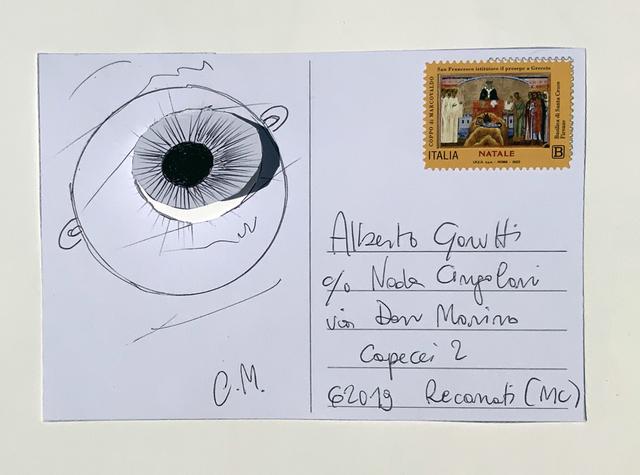 San Francesco istitutore il presepe a Greccio
COPPO di MARCOVALDO
Basilica di Santa Croce
Firenze
ITALIA NATALE B
I.P.Z.S. S.p.A. - ROMA - 2023
Alberto Garutti
c/o Nada Cingolani
via Don Monino
Capecci 2
62019 Recanati (MC)
C.M.